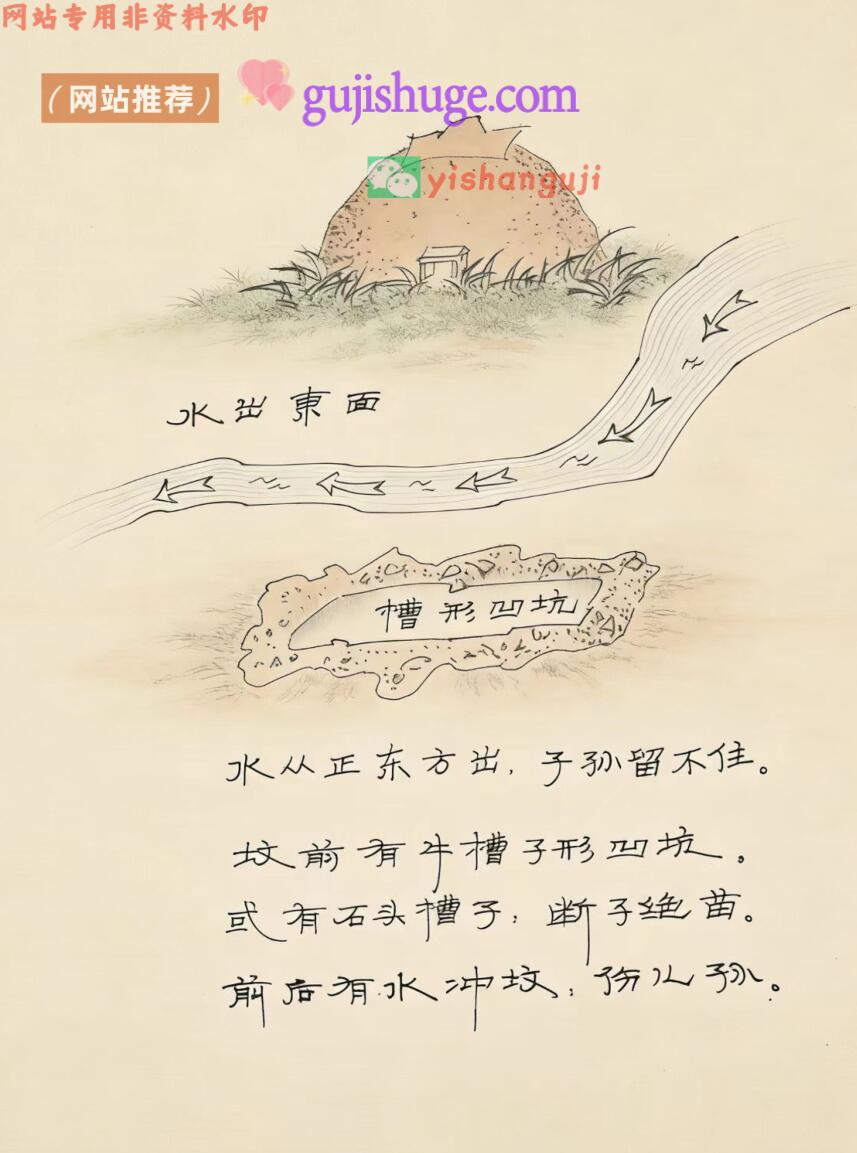 网站专用非资料水印
（网站推荐）
gujishuge.com
yishanguji
水出東面
槽形凹坑
水从正东方出，子孙留不住。
坟前有牛槽子形凹坑。
或有石头槽子；断子绝苗。
前后有水冲坟；伤儿孙。